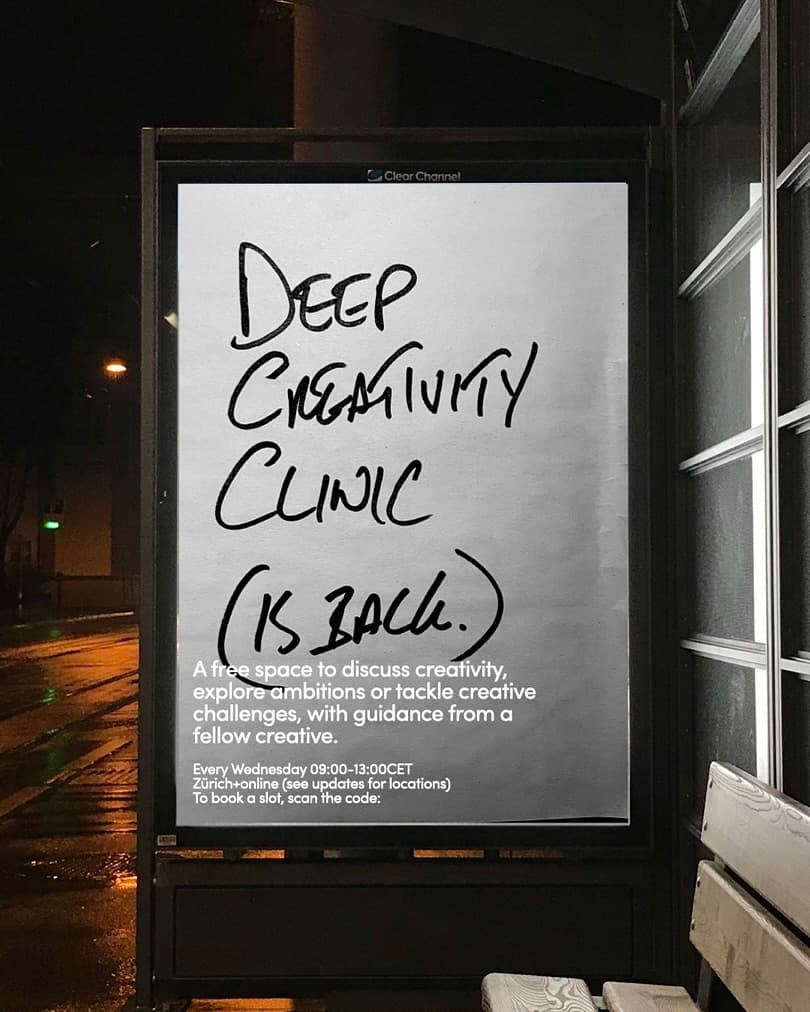 Clear Channel
DEEP
CREATIVITY
CLINIC
(IS BACK.)
A free space to discuss creativity,
explore ambitions or tackle creative
challenges, with guidance from a
fellow creative.
Every Wednesday 09:00-13:00CET
Zürich+online (see updates for locations)
To book a slot, scan the code: